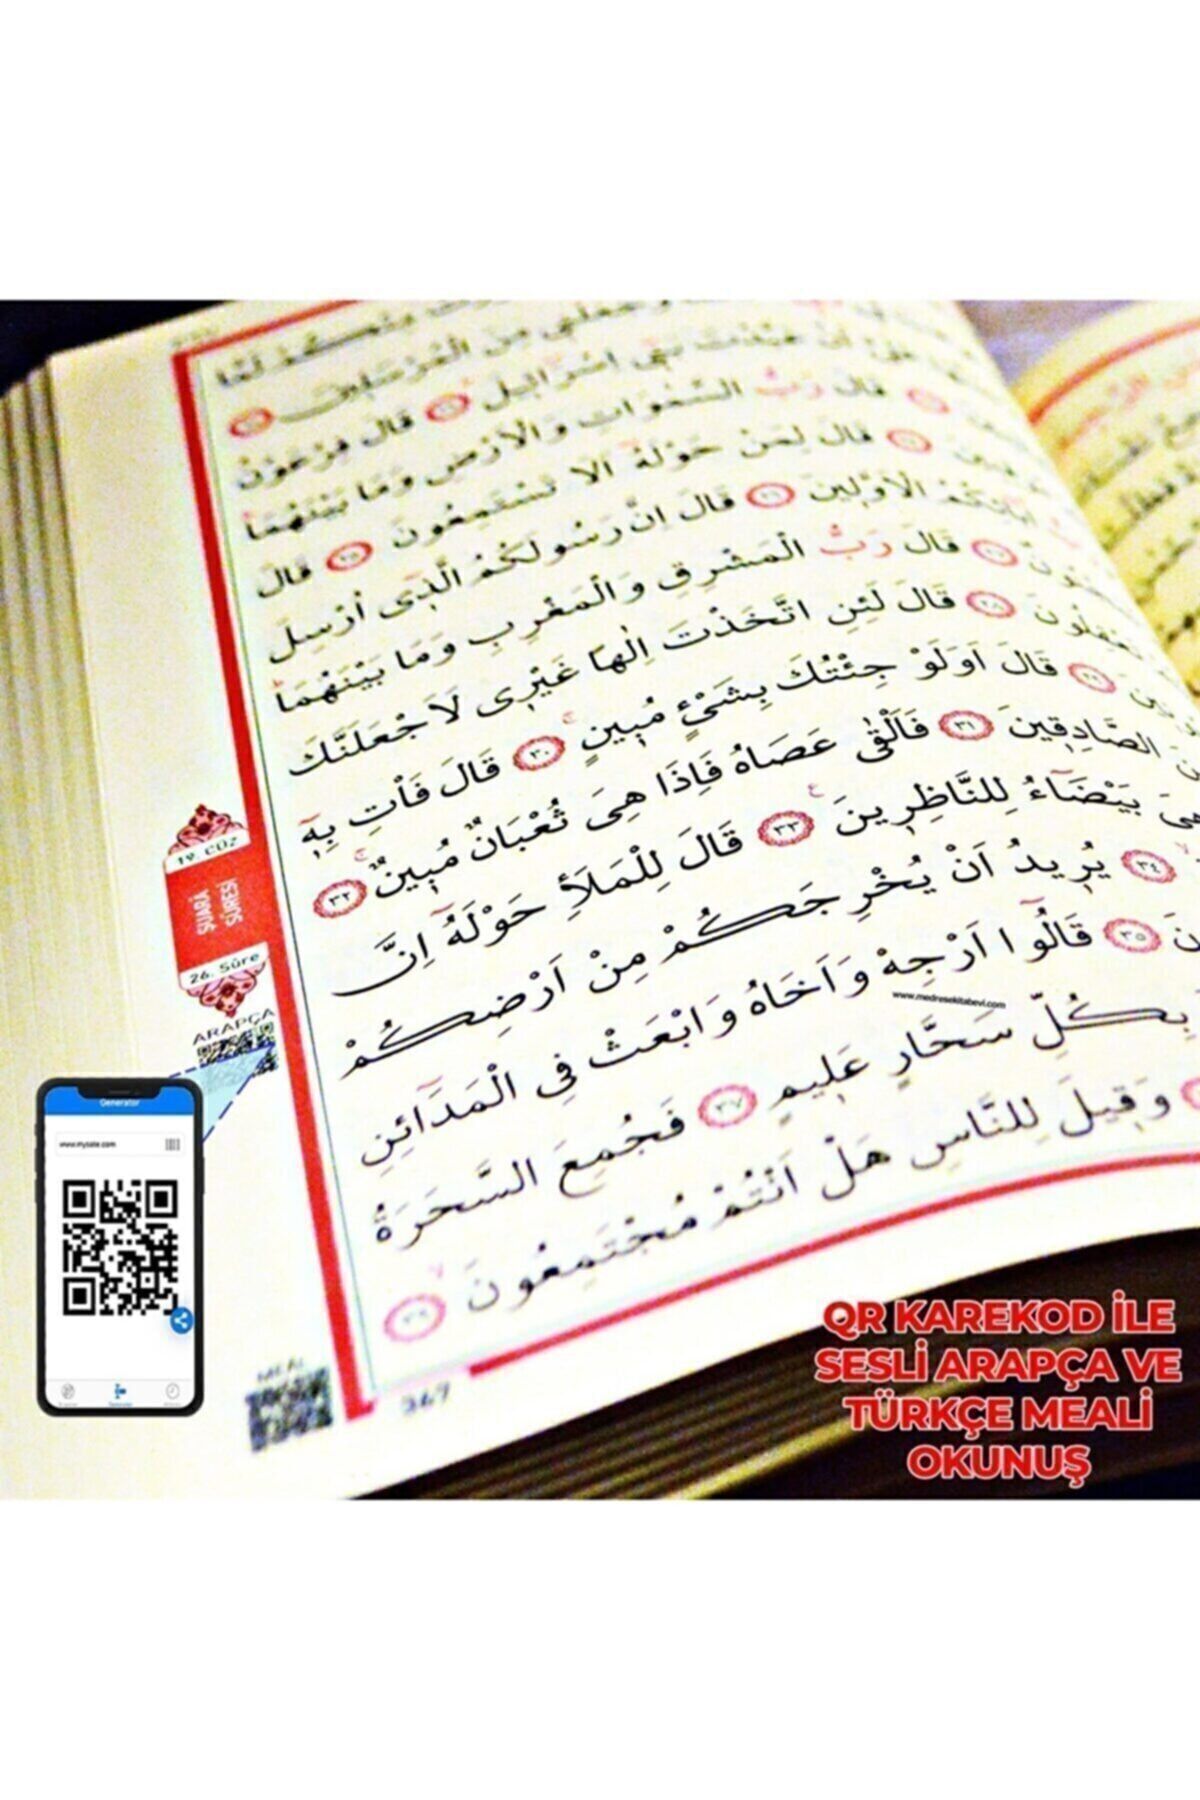 وَجَعَلَنِي مِنَ الْمُرْسَلِينَ
اَنْ عَبَّدْتَ بَنِي اِسْرَائِيلَ ٢٢ قَالَ فِرْعَوْنُ
قَالَ رَبُّ السَّمٰوَاتِ وَالْاَرْضِ وَمَا بَيْنَهُمَا
قَالَ لِمَنْ حَوْلَهُ اَلَا تَسْتَمِعُونَ ٢٥ قَالَ
اٰبَائِكُمُ الْاَوَّلِينَ ٢٦ قَالَ اِنَّ رَسُولَكُمُ الَّذِى اُرْسِلَ
قَالَ رَبُّ الْمَشْرِقِ وَالْمَغْرِبِ وَمَا بَيْنَهُمَا
تَعْقِلُونَ ٢٨ قَالَ لَئِنِ اتَّخَذْتَ اِلٰهًا غَيْرِى لَاَجْعَلَنَّكَ
قَالَ اَوَلَوْ جِئْتُكَ بِشَىْءٍ مُبِينٍ ٣٠ قَالَ فَأْتِ بِهٖ
الصَّادِقِينَ ٣١ فَاَلْقٰى عَصَاهُ فَاِذَا هِىَ ثُعْبَانٌ مُبِينٌ ٣٢
هِىَ بَيْضَاءُ لِلنَّاظِرِينَ ٣٣ قَالَ لِلْمَلَاِ حَوْلَهُ اِنَّ
٣٤ يُرِيدُ اَنْ يُخْرِجَكُمْ مِنْ اَرْضِكُمْ
٣٥ قَالُوا اَرْجِهْ وَاَخَاهُ وَابْعَثْ فِى الْمَدَائِنِ
بِكُلِّ سَحَّارٍ عَلِيمٍ ٣٧ فَجُمِعَ السَّحَرَةُ
وَقِيلَ لِلنَّاسِ هَلْ اَنْتُمْ مُجْتَمِعُونَ ٣٩
19. CÜZ
ŞUARÂ
SÛRESİ
26. Sûre
ARAPÇA
www.medresekitabevi.com
Generator
www.mysite.com
MEAL
367
QR KAREKOD İLE
SESLİ ARAPÇA VE
TÜRKÇE MEALİ
OKUNUŞ